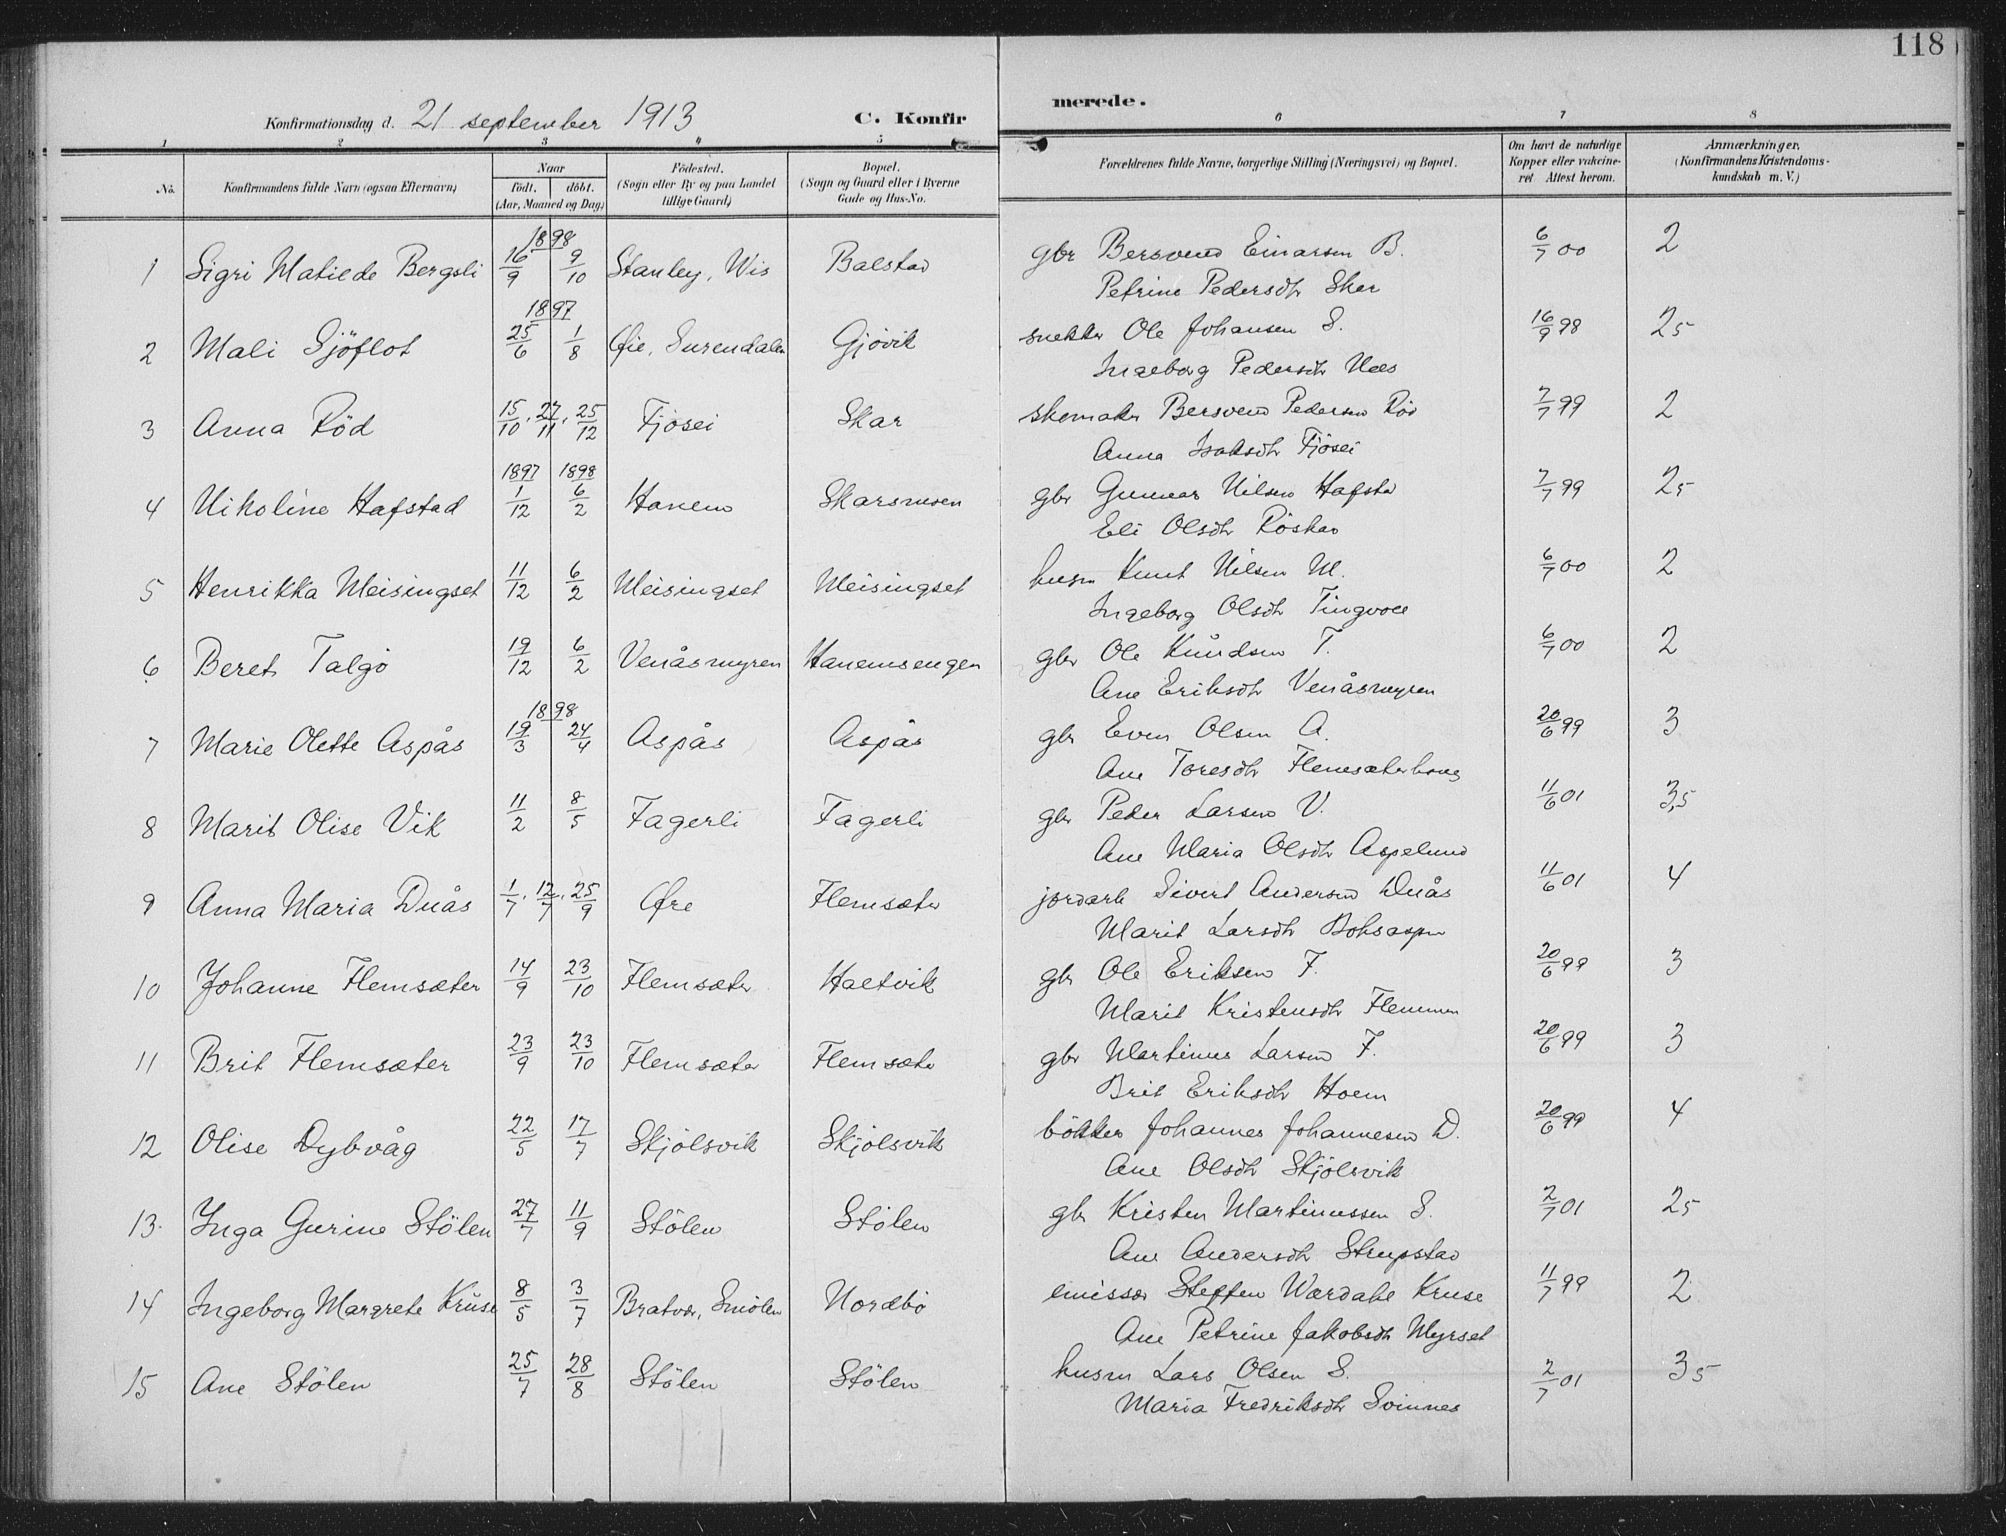 118
Konfirmationsdag d. 21 september 1913 C. Konfirmerede.
1 2 3 4 5 6 7 8
No. Konfirmandens fulde Navn (ogsaa Efternavn) Naar født. døbt. (Aar, Maaned og Dag) Fødested. (Sogn eller By og paa Landet tillige Gaard) Bopæl. (Sogn og Gaard eller i Byerne Gade og Hus-No. Forældrenes fulde Navne, borgerlige Stilling (Næringsvei) og Bopæl. Om havt de naturlige Kopper eller vakcineret Attest herom. Anmærkninger. (Konfirmandens Kristendomskundskab m. V.)
1898
1 Sigri Matilde Bergsli 16/9 9/10 Stanley, Wis Balstad gbr Bersvend Einarsen B. 6/7 00 2
Petrine Pedersdtr Skar
1897
2 Mali Sjöflot 25/6 1/8 Øie, Surendalen Gjövik snekker Ole Johansen S. 16/9 98 25
Ingeborg Pedersdtr Nees
3 Anna Röd 15/10 . 27/11 . 25/12 Fjösei Skar skomaker Bersvend Pedersen Röd 7/7 99 2
Anna Isaksdtr Fjösei
1897 1898
4 Nikoline Hafstad 1/12 6/2 Hanem Skarsmoen gbr Gunnar Nilsen Hafstad 7/7 99 25
Eli Olsdtr Röskar
5 Henrikka Meisingset 11/12 6/2 Meisingset Meisingset husm Knut Nilsen M. 6/7 00 2
Ingeborg Olsdtr Tingvoll
6 Beret Talgö 19/12 6/2 Venåsmyren Hanemsengen gbr Ole Knudsen T. 6/7 00 2
Ane Eriksdtr Venåsmyren
1898
7 Marie Olette Aspås 19/3 24/4 Aspås Aspås gbr Even Olsen A. 20/6 99 3
Ane Toresdtr Flemsæterhaug
8 Marit Olise Vik 11/2 8/5 Fagerli Fagerli gbr Peder Larsen V. 11/6 01 3,5
Ane Maria Olsdtr Aspelund
9 Anna Maria Duås 1/7 . 12/7 . 25/9 Øre Flemsæter jordarb Sivert Andersen Duås 11/6 01 4
Marit Larsdtr Boksaspen
10 Johanne Flemsæter 14/9 23/10 Flemsæter Haltvik gbr Ole Eriksen F. 20/6 99 3
Marit Kristensdtr Flemmen
11 Brit Flemsæter 23/9 23/10 Flemsæter Flemsæter gbr Martinus Larsen F. 20/6 99 3
Brit Eriksdtr Hoem
12 Olise Dybvåg 22/5 17/7 Skjölsvik Skjölsvik bökker Johannes Johannesen D. 20/6 99 4
Ane Olsdtr Skjölsvik
13. Inga Gurine Stölen 27/7 11/9 Stölen Stölen gbr Kristen Martinussen S. 2/7 01 25
Ane Andersdtr Strupstad
14 Ingeborg Margrete Kruse 8/5 3/7 Bratvær, Smölen Nordbö emissær Steffen Wærdahl Kruse 11/7 99 2
Ane Petrine Jakobsdtr Myrset
15 Ane Stölen 25/7 28/8 Stölen Stölen husm Lars Olsen S. 2/7 01 35
Maria Fredriksdtr Svinnes